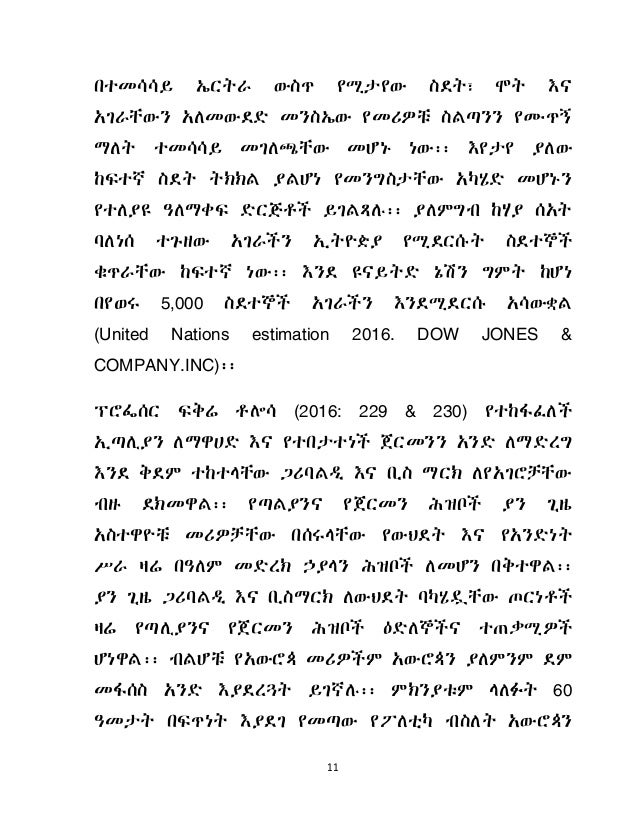 በተመሳሳይ ኤርትራ ውስጥ የሚታየው ስደት፣ ሞት እና
አገራቸውን አለመውደድ መንስኤው የመሪዎቹ ስልጣንን የሙጥኝ
ማለት ተመሳሳይ መገለጫቸው መሆኑ ነው፡፡ እየታየ ያለው
ከፍተኛ ስደት ትክክል ያልሆነ የመንግስታቸው አካሄድ መሆኑን
የተለያዩ ዓለማቀፍ ድርጅቶች ይገልጻሉ፡፡ ያለምግብ ከሃያ ሰአት
ባለነሰ ተጉዘው አገራችን ኢትዮጵያ የሚደርሱት ስደተኞች
ቁጥራቸው ከፍተኛ ነው፡፡ እንደ ዩናይትድ ኔሽን ግምት ከሆነ
በየወሩ 5,000 ስደተኞች አገራችን እንደሚደርሱ አሳውቋል
(United Nations estimation 2016. DOW JONES &
COMPANY.INC)፡፡
ፕሮፌሰር ፍቅሬ ቶሎሳ (2016: 229 & 230) የተከፋፈለች
ኢጣሊያን ለማዋሀድ እና የተበታተነች ጀርመንን አንድ ለማድረግ
እንደ ቅደም ተከተላቸው ጋሪባልዲ እና ቢስ ማርክ ለየአገሮቻቸው
ብዙ ደክመዋል፡፡ የጣልያንና የጀርመን ሕዝቦች ያን ጊዜ
አስተዋዮቹ መሪዎቻቸው በሰሩላቸው የውህደት እና የአንድነት
ሥራ ዛሬ በዓለም መድረክ ኃያላን ሕዝቦች ለመሆን በቅተዋል፡፡
ያን ጊዜ ጋሪባልዲ እና ቢስማርክ ለውህደት ባካሄዷቸው ጦርነቶች
ዛሬ የጣሊያንና የጀርመን ሕዝቦች ዕድለኞችና ተጠቃሚዎች
ሆነዋል፡፡ ብልሆቹ የአውሮጳ መሪዎችም አውሮጳን ያለምንም ደም
መፋሰስ አንድ እያደረጓት ይገኛሉ፡፡ ምክንያቱም ላለፉት 60
ዓመታት በፍጥነት እያደገ የመጣው የፖለቲካ ብስለት አውሮጳን
11